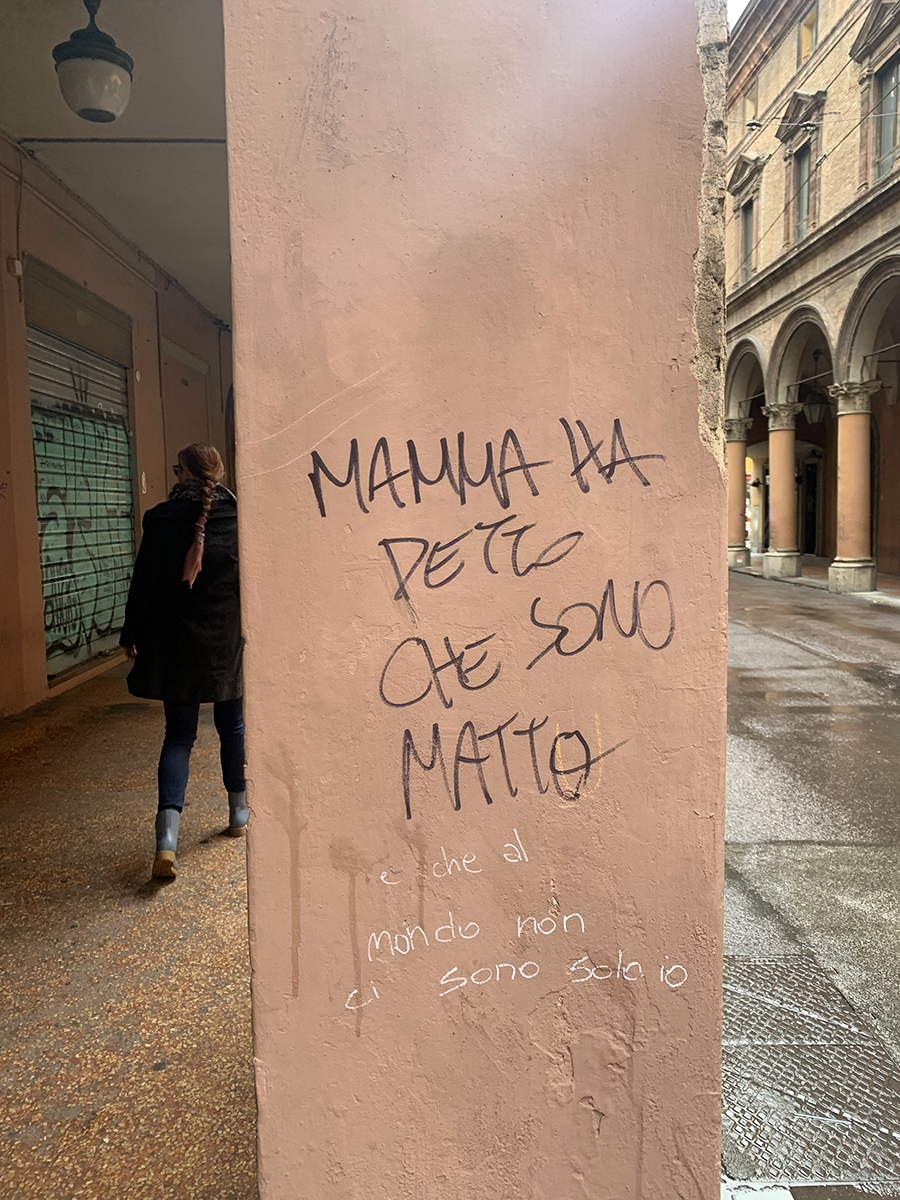 MAMMA HA
DETTO
CHE SONO
MATTO
e che al
mondo non
ci sono solo io